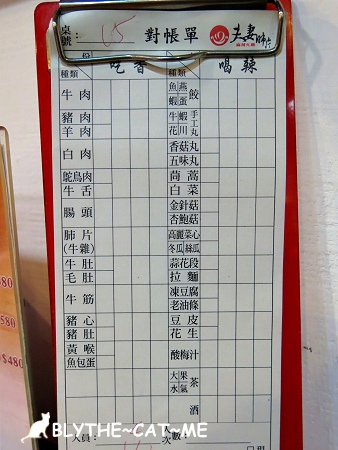 桌號: 05 對帳單 夫妻肺片
份 吃香 喝辣
種類 種類
牛肉
豬肉
羊肉
白肉
鴕鳥肉
牛舌
腸頭
肺片
(牛雜)
牛肚
毛肚
牛筋
豬心
豬肚
黃喉
魚包蛋
魚 燕 餃
蝦 蛋
牛 蝦 手工丸
花 川
香菇丸
五味丸
茼蒿
白菜
金針菇
杏鮑菇
高麗菜心
冬瓜 絲瓜
蒜花段
拉麵
凍豆腐
老油條
豆皮
花生
酸梅汁
大 果 茶
水 氣
酒
人員: 次數:
580
580
$480
BLYTHE~CAT~ME